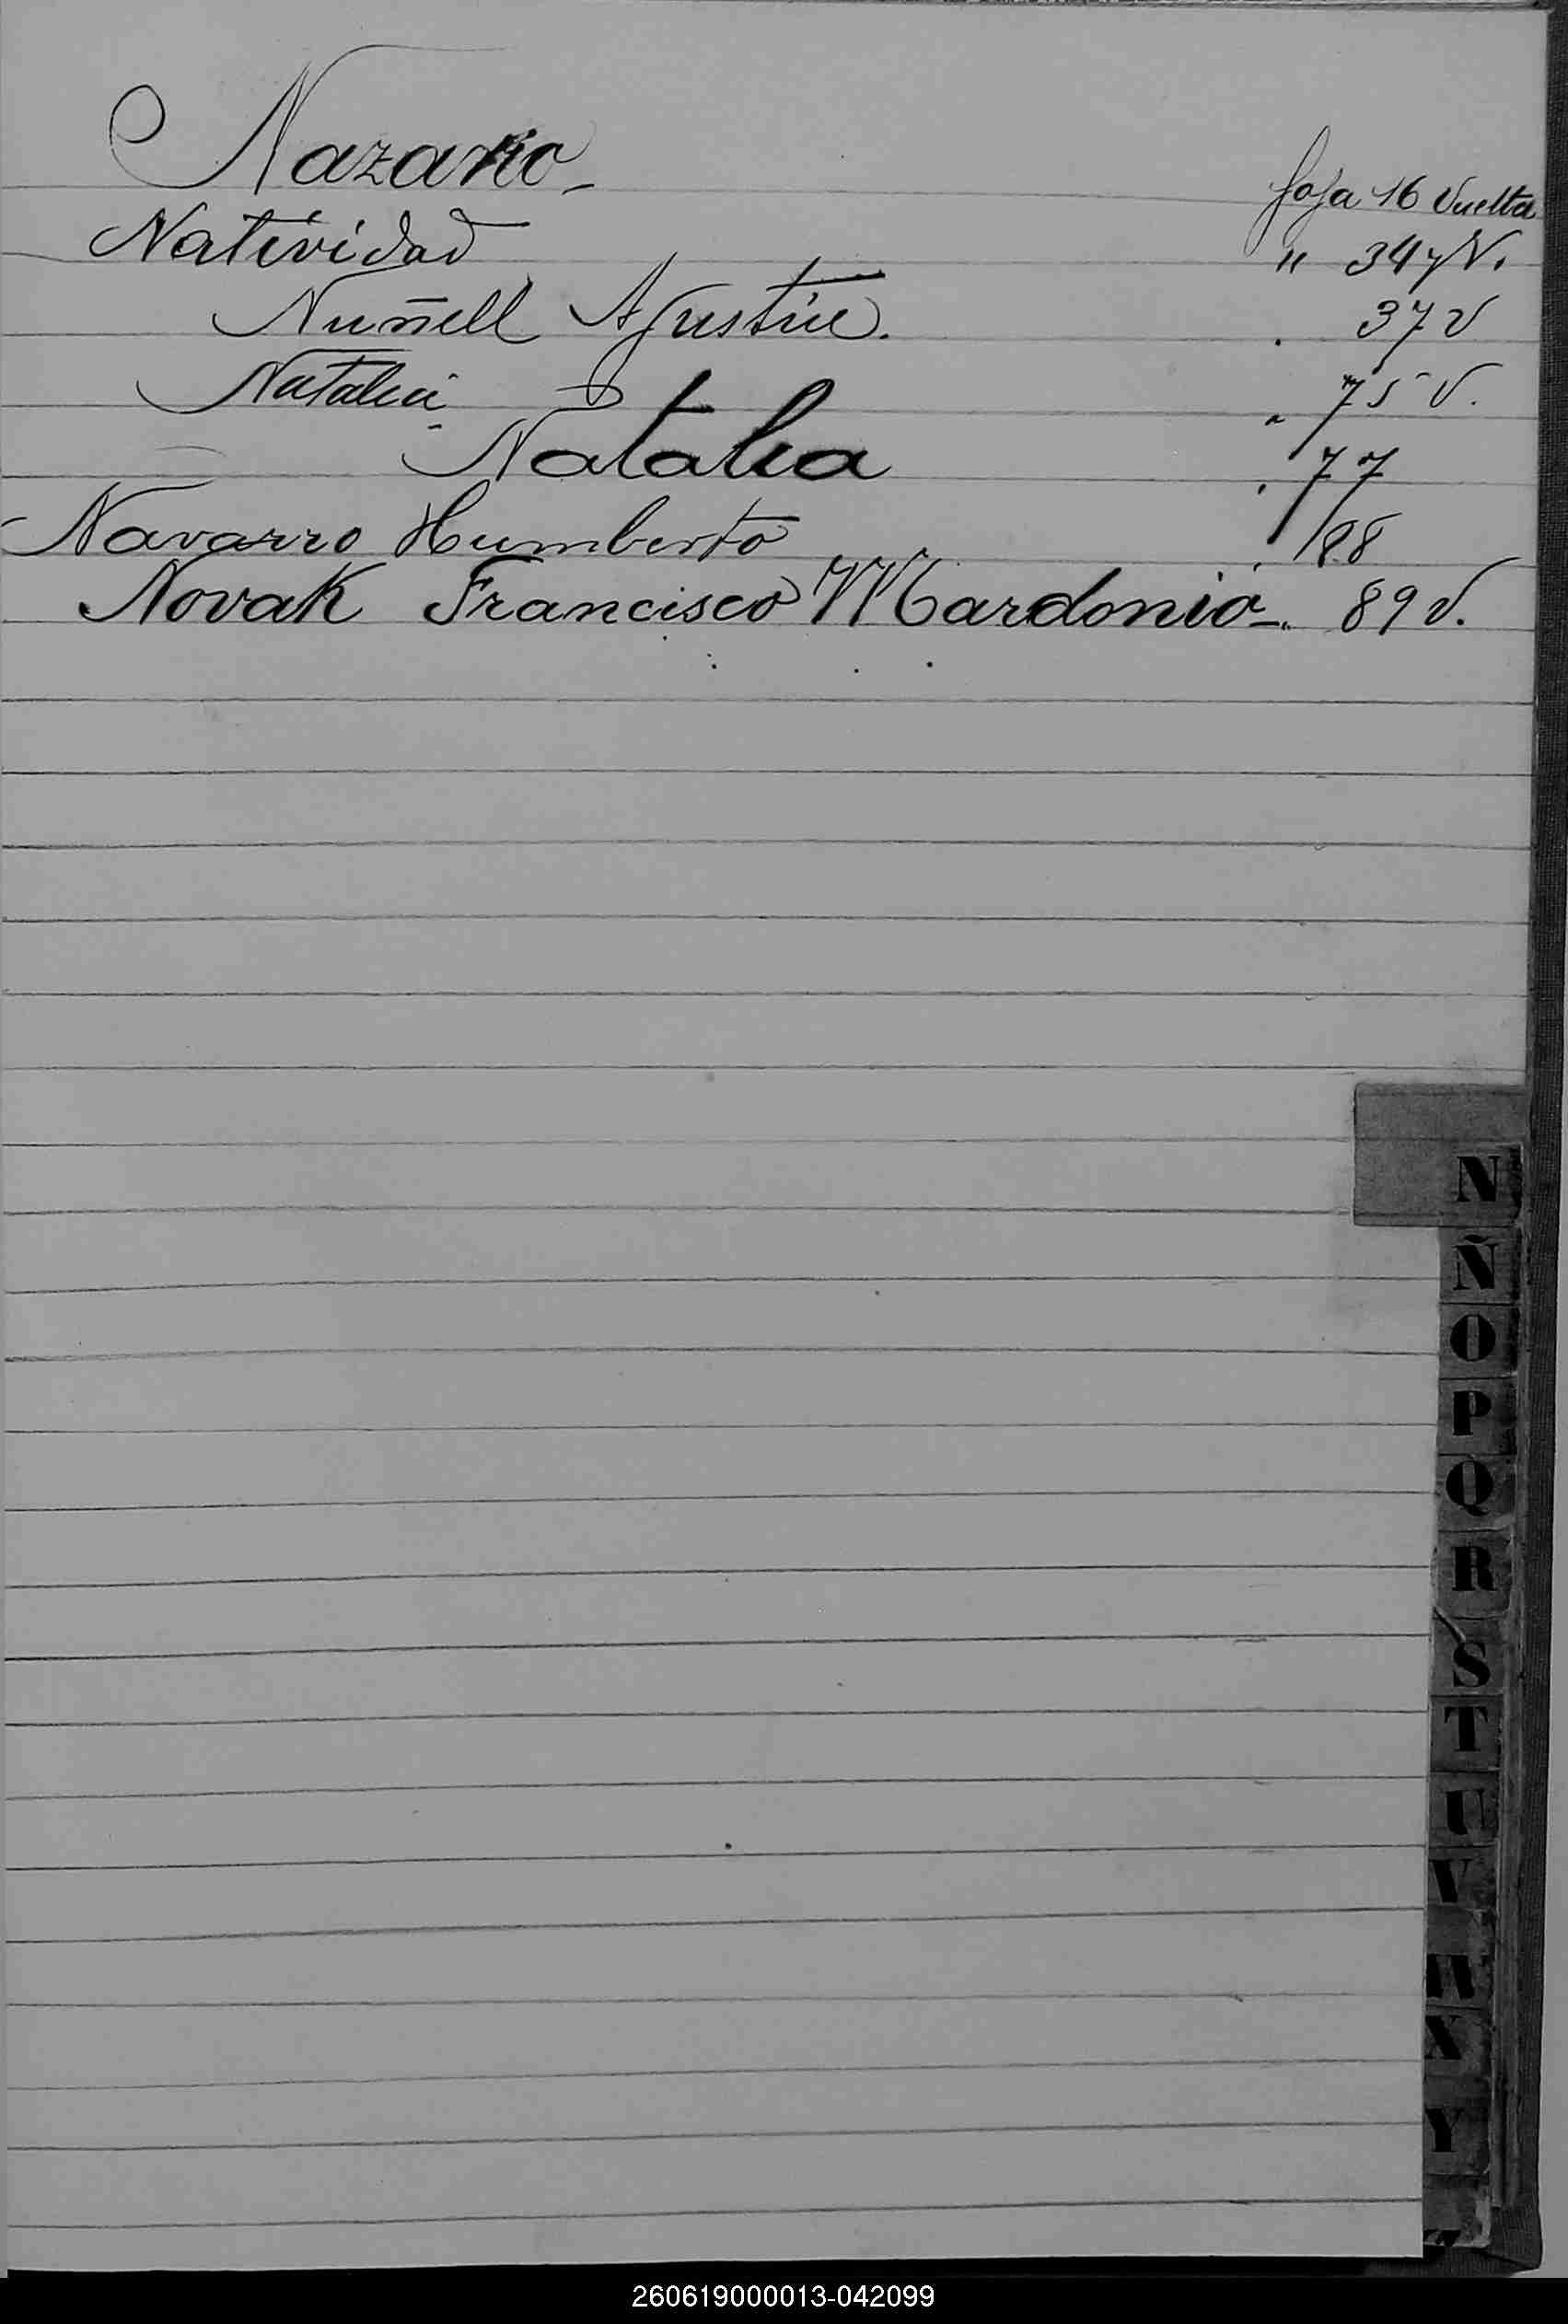 Nazario - foja 16 Vuelta
Natividad " 34 y V.
Nuñell Agustin. . 37 V
Natalia " 75 V.
Natalia . 77
Navarro Humberto . 88
Novak Francisco Mardonio -. 89 V.
N
Ñ
O
P
Q
R
S
T
U
V
X
Y
260619000013-042099